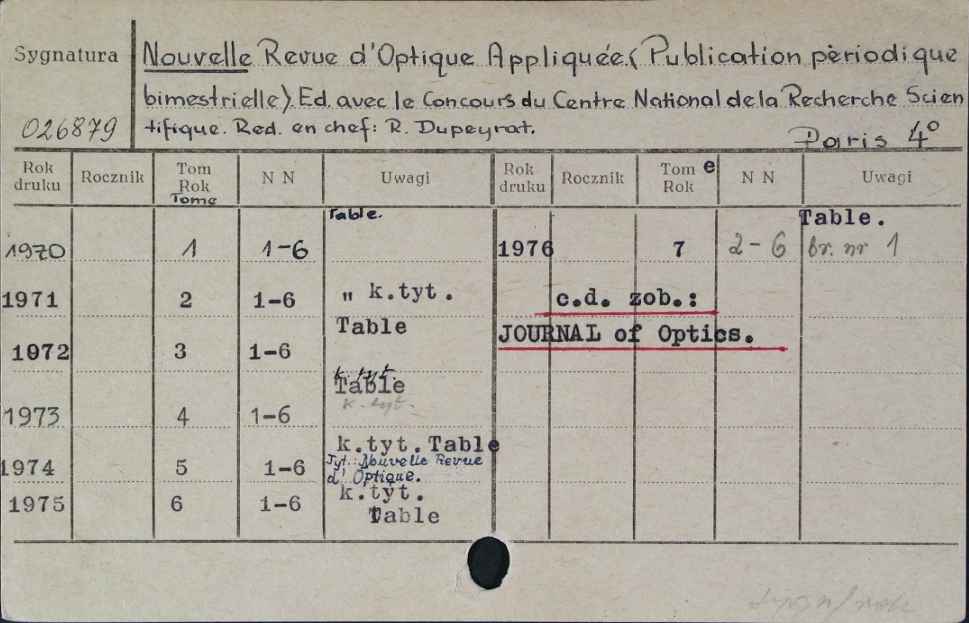 Sygnatura
Nouvelle Revue d'Optique Appliquée. (Publication périodique
bimestrielle). Ed. avec le Concours du Centre National de la Recherche Scien
026879 tifique. Red. en chef: R. Dupeyrat.
Paris 4°
Rok druku Rocznik Tom Rok Tome N N Uwagi Rok druku Rocznik Tom e Rok N N Uwagi
1970 1 1-6 Table. 1976 7 2-6 Table. br. nr 1
1971 2 1-6 " k.tyt. c.d. zob.:
Table JOURNAL of Optics.
1972 3 1-6
k.tyt.
Table
k.tyt.
1973 4 1-6
k.tyt. Table
1974 5 1-6 Tyt.: Nouvelle Revue
d'Optique.
1975 6 1-6 k.tyt.
Table